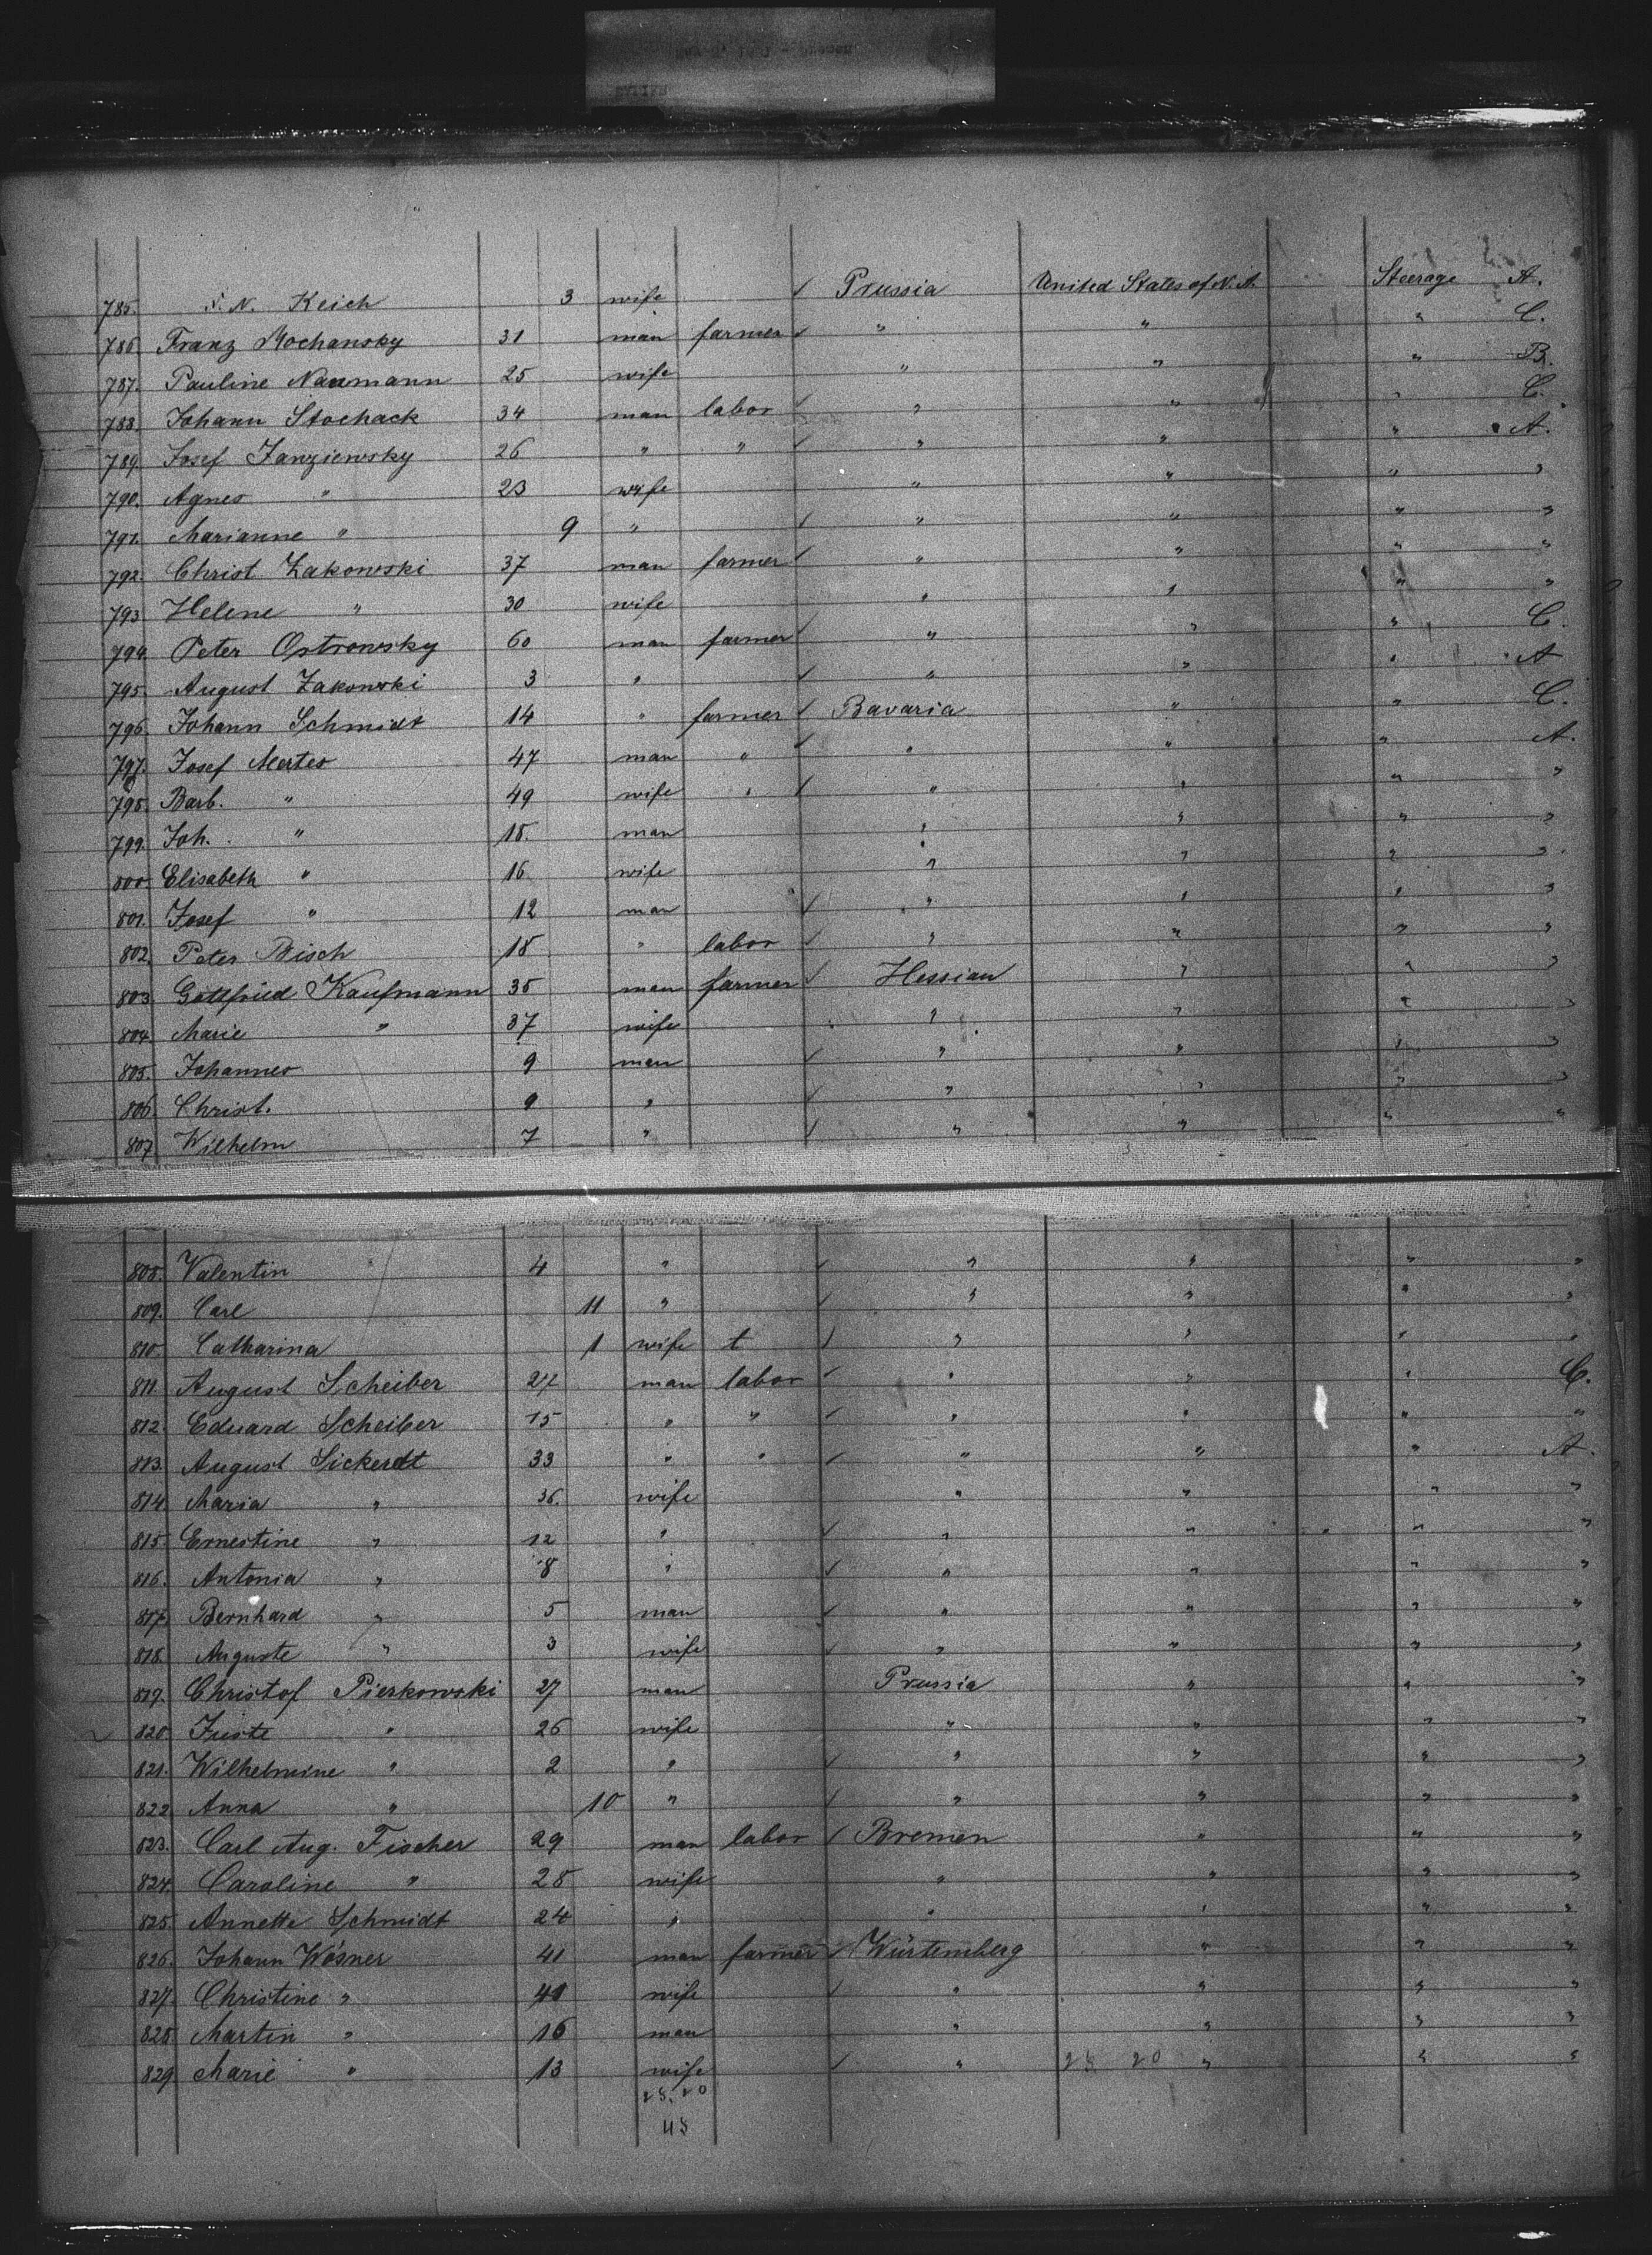 785. N. Keich 3 wife Prussia United States of N. A. Steerage A.
786. Franz Mochansky 31 man farmer " " " C.
787. Pauline Naumann 25 wife " " " B.
788. Johann Stochack 34 man labor " " " C.
789. Josef Janziewsky 26 " " " " " A.
790. Agnes " 23 wife " " " "
791. Marianne " 9 " " " " "
792. Christ Zakowski 37 man farmer " " " "
793 Helene " 30 wife " " " "
794. Peter Ostrowsky 60 man farmer " " " C.
795. August Zakowski 3 " " " " A
796. Johann Schmidt 14 " farmer Bavaria " " C.
797. Josef Mertes 47 man " " " " A.
798. Barb. " 49 wife " " " " "
799. Joh. " 18. man " " " "
800 Elisabeth " 16 wife " " " "
801. Josef " 12 man " " " "
802. Peter Bisch 18 " labor " " " "
803 Gottfried Kaufmann 35 man farmer Hessian " " "
804. Marie " 37 wife " " " "
805. Johannes 9 man " " " "
806. Christ. 9 " " " " "
807 Wilhelm 7 " " " " "
808. Valentin 4 " " " " "
809. Carl 11 " " " " "
810. Catharina 1 wife t " " " "
811 August Scheiber 27 man labor " " " C.
812. Eduard Scheiber 15 " " " " " "
813. August Sickerdt 33 " " " " " A.
814. Maria " 36. wife " " " "
815 Ernestine " 12 " " " " "
816. Antonia " 8 " " " " "
817. Bernhard " 5 man " " " "
818. Auguste " 3 wife " " " "
819. Christof Pierkowski 27 man Prussia " " "
820. Juste " 26 wife " " " "
821. Wilhelmine " 2 " " " " "
822. Anna " 10 " " " " "
823. Carl Aug. Fischer 29 man labor Bremen " " "
824. Caroline " 28 wife " " " "
825. Annette Schmidt 24 " " " " "
826. Johann Wösner 41 man farmer Würtemberg " " "
827. Christine " 41 wife " " " "
828 Martin " 16 man " " " "
829 Marie " 13 wife " 28 20 " " "
28. 20
48